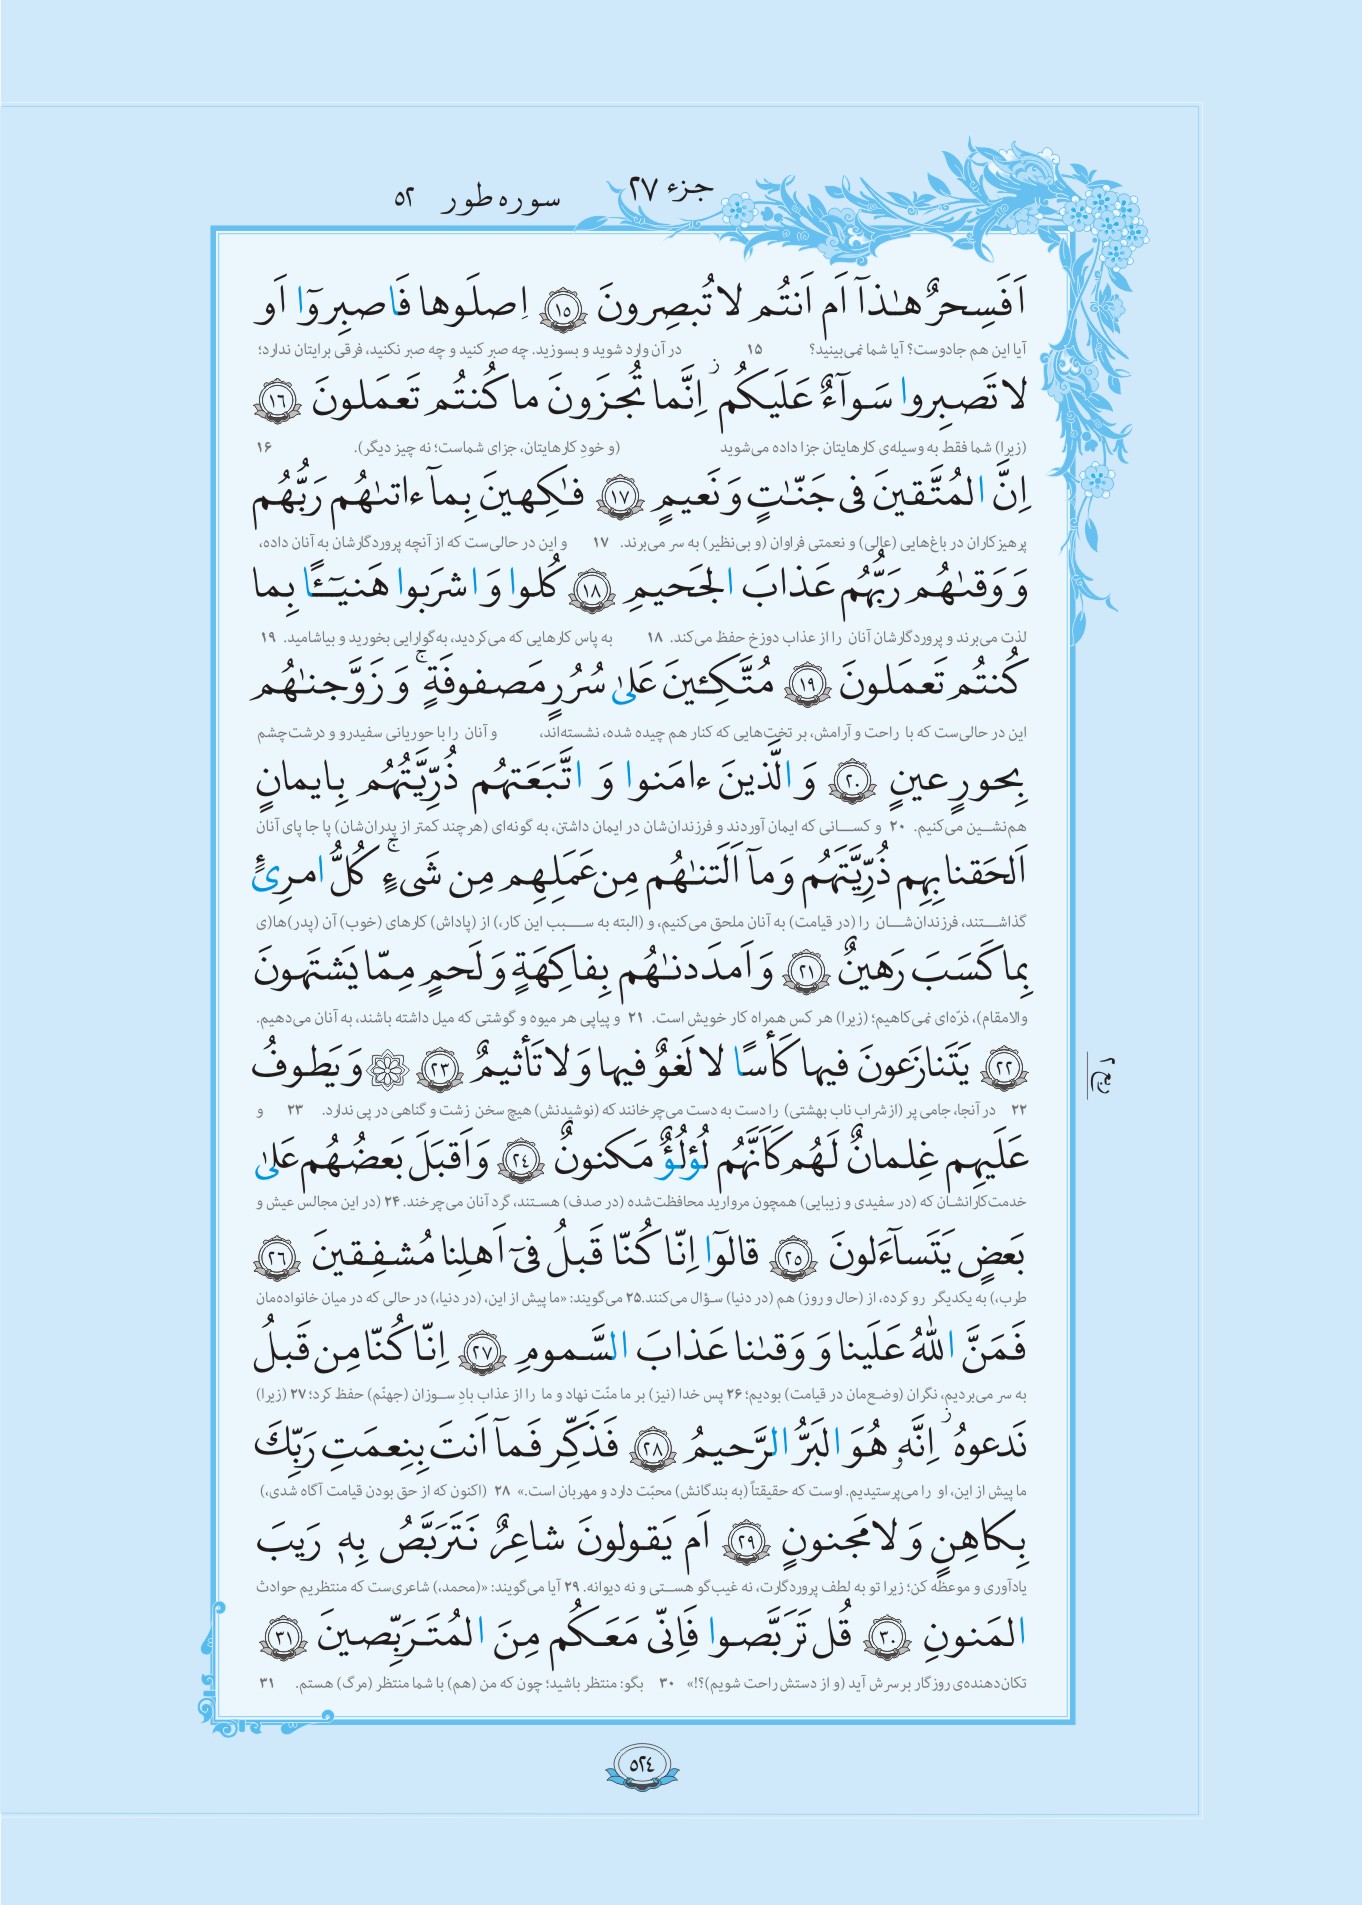 جزء ۲۷
سوره طور ۵۲
اَفَسِحرٌ هـٰذآ اَم اَنتُم لا تُبصِرونَ ﴿۱۵﴾ اِصلَوها فَاصبِروٓا اَو
آیا این هم جادوست؟ آیا شما نمی‌بینید؟ ۱۵ در آن وارد شوید و بسوزید. چه صبر کنید و چه صبر نکنید، فرقی برایتان ندارد؛
لا تَصبِروا سَوآءٌ عَلَیکُم ۖ اِنَّما تُجزَونَ ما کُنتُم تَعمَلونَ ﴿۱۶﴾
(زیرا) شما فقط به وسیله‌ی کارهایتان جزا داده می‌شوید (و خودِ کارهایتان، جزای شماست؛ نه چیز دیگر). ۱۶
اِنَّ المُتَّقینَ فی جَنّـٰتٍ وَ نَعیمٍ ﴿۱۷﴾ فـٰکِهینَ بِمآ ءاتىٰهُم رَبُّهُم
پرهیزکاران در باغ‌هایی (عالی) و نعمتی فراوان (و بی‌نظیر) به سر می‌برند. ۱۷ و این در حالی‌ست که از آنچه پروردگارشان به آنان داده،
وَ وَقىٰهُم رَبُّهُم عَذابَ الجَحیمِ ﴿۱۸﴾ کُلوا وَ اشرَبوا هَنیـٓـًٔا بِما
لذت می‌برند و پروردگارشان آنان را از عذاب دوزخ حفظ می‌کند. ۱۸ به پاس کارهایی که می‌کردید، به‌گوارایی بخورید و بیاشامید. ۱۹
کُنتُم تَعمَلونَ ﴿۱۹﴾ مُتَّکِـٔینَ عَلىٰ سُرُرٍ مَصفوفَةٍ ۚ وَ زَوَّجنـٰهُم
این در حالی‌ست که با راحت و آرامش، بر تخت‌هایی که کنار هم چیده شده، نشسته‌اند، و آنان را با حوریانی سفیدرو و درشت‌چشم
بِحورٍ عینٍ ﴿۲۰﴾ وَ الَّذینَ ءامَنوا وَ اتَّبَعَتهُم ذُرِّیَّتُهُم بِایمانٍ
هم‌نشین می‌کنیم. ۲۰ و کسانی که ایمان آوردند و فرزندان‌شان در ایمان داشتن، به گونه‌ای (هرچند کمتر از پدران‌شان) پا جا پای آنان
اَلحَقنا بِهِم ذُرِّیَّتَهُم وَ مآ اَلَتنـٰهُم مِن عَمَلِهِم مِن شَیءٍ ۚ کُلُّ امرِئٍ
گذاشتند، فرزندان‌شان را (در قیامت) به آنان ملحق می‌کنیم، و (البته به سبب این کار،) از (پاداش) کارهای (خوب) آن (پدر)ها(ی
بِما کَسَبَ رَهینٌ ﴿۲۱﴾ وَ اَمدَدنـٰهُم بِفاکِهَةٍ وَ لَحمٍ مِمّا یَشتَهونَ
والامقام)، ذرّه‌ای نمی‌کاهیم؛ (زیرا) هر کس همراه کار خویش است. ۲۱ و پیاپی هر میوه و گوشتی که میل داشته باشند، به آنان می‌دهیم.
﴿۲۲﴾ یَتَنازَعونَ فیها کَأسًا لا لَغوٌ فیها وَ لا تَأثیمٌ ﴿۲۳﴾ ۞ وَ یَطوفُ
ربع ۲
۲۲ در آنجا، جامی پر (از شراب ناب بهشتی) را دست به دست می‌چرخانند که (نوشیدنش) هیچ سخن زشت و گناهی در پی ندارد. ۲۳ و
عَلَیهِم غِلمانٌ لَهُم کَاَنَّهُم لُؤلُؤٌ مَکنونٌ ﴿۲۴﴾ وَ اَقبَلَ بَعضُهُم عَلىٰ
خدمت‌کارانشان که (در سفیدی و زیبایی) همچون مروارید محافظت‌شده (در صدف) هستند، گرد آنان می‌چرخند. ۲۴ (در این مجالس عیش و
بَعضٍ یَتَسآءَلونَ ﴿۲۵﴾ قالوٓا اِنّا کُنّا قَبلُ فیٓ اَهلِنا مُشفِقینَ ﴿۲۶﴾
طرب،) به یکدیگر رو کرده، از (حال و روز) هم (در دنیا) سؤال می‌کنند.۲۵ می‌گویند: «ما پیش از این، (در دنیا،) در حالی که در میان خانواده‌مان
فَمَنَّ اللّٰهُ عَلَینا وَ وَقىٰنا عَذابَ السَّمومِ ﴿۲۷﴾ اِنّا کُنّا مِن قَبلُ
به سر می‌بردیم، نگران (وضع‌مان در قیامت) بودیم؛ ۲۶ پس خدا (نیز) بر ما منّت نهاد و ما را از عذاب بادِ سوزان (جهنّم) حفظ کرد؛ ۲۷ (زیرا)
نَدعوهُ ۖ اِنَّهٗ هُوَ البَرُّ الرَّحیمُ ﴿۲۸﴾ فَذَکِّر فَمآ اَنتَ بِنِعمَتِ رَبِّکَ
ما پیش از این، او را می‌پرستیدیم. اوست که حقیقتاً (به بندگانش) محبّت دارد و مهربان است.» ۲۸ (اکنون که از حق بودن قیامت آگاه شدی،)
بِکاهِنٍ وَ لا مَجنونٍ ﴿۲۹﴾ اَم یَقولونَ شاعِرٌ نَتَرَبَّصُ بِهٖ رَیبَ
یادآوری و موعظه کن؛ زیرا تو به لطف پروردگارت، نه غیب‌گو هستی و نه دیوانه. ۲۹ آیا می‌گویند: «(محمد،) شاعری‌ست که منتظریم حوادث
المَنونِ ﴿۳۰﴾ قُل تَرَبَّصوا فَاِنّی مَعَکُم مِنَ المُتَرَبِّصینَ ﴿۳۱﴾
تکان‌دهنده‌ی روزگار بر سرش آید (و از دستش راحت شویم)؟!» ۳۰ بگو: منتظر باشید؛ چون که من (هم) با شما منتظر (مرگ) هستم. ۳۱
۵۲۴